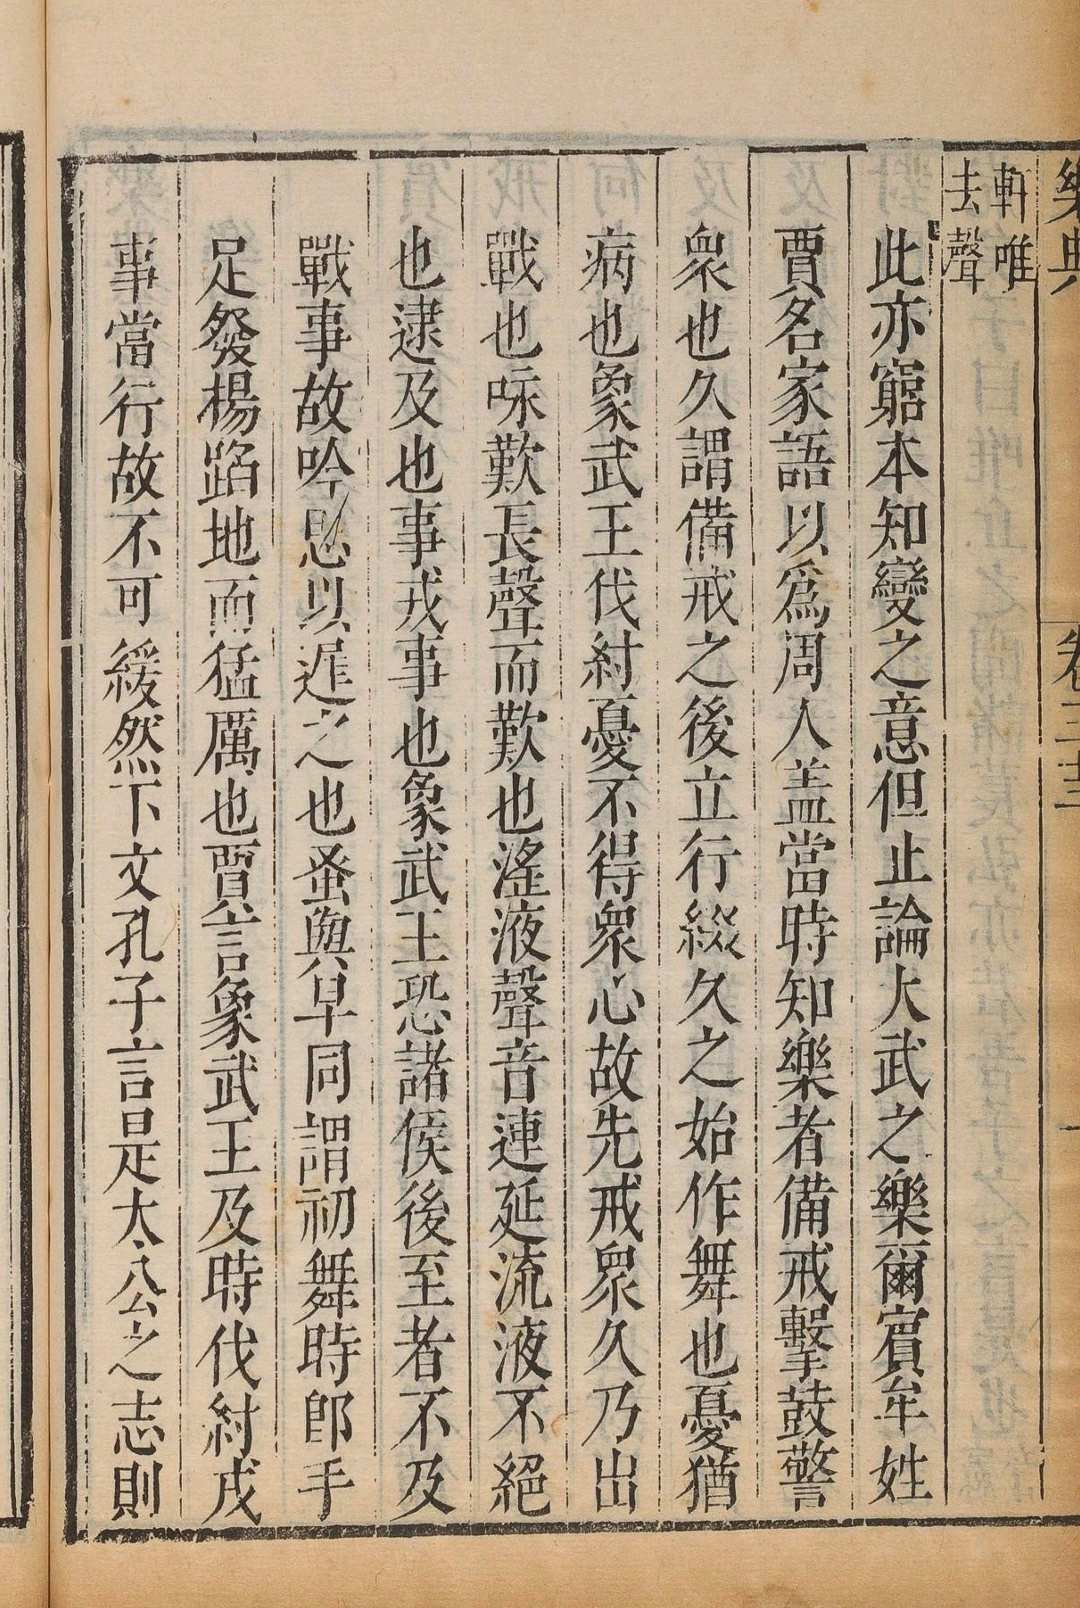 樂典
卷三十三
一
軒唯
去聲
此亦窮本知變之意但止論大武之樂爾賓牟姓
賈名家語以爲周人盖當時知樂者備戒擊鼓警
衆也久謂備戒之後立行綴久之始作舞也憂猶
病也象武王伐紂憂不得衆心故先戒衆久乃出
戰也咏歎長聲而歎也滛液聲音連延流液不絕
也逮及也事戎事也象武王恐諸侯後至者不及
戰事故吟思以遲之也蚤與早同謂初舞時卽手
足發楊蹈地而猛厲也賈言象武王及時伐紂戎
事當行故不可緩然下文孔子言是太公之志則